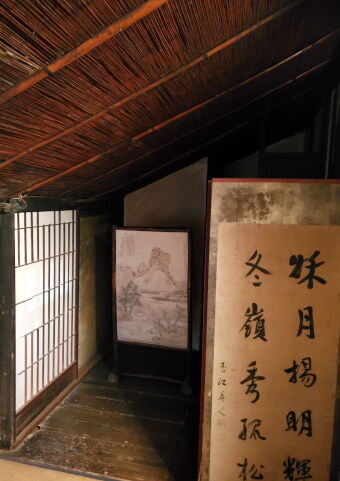 秋月揚明輝
冬嶺秀孤松